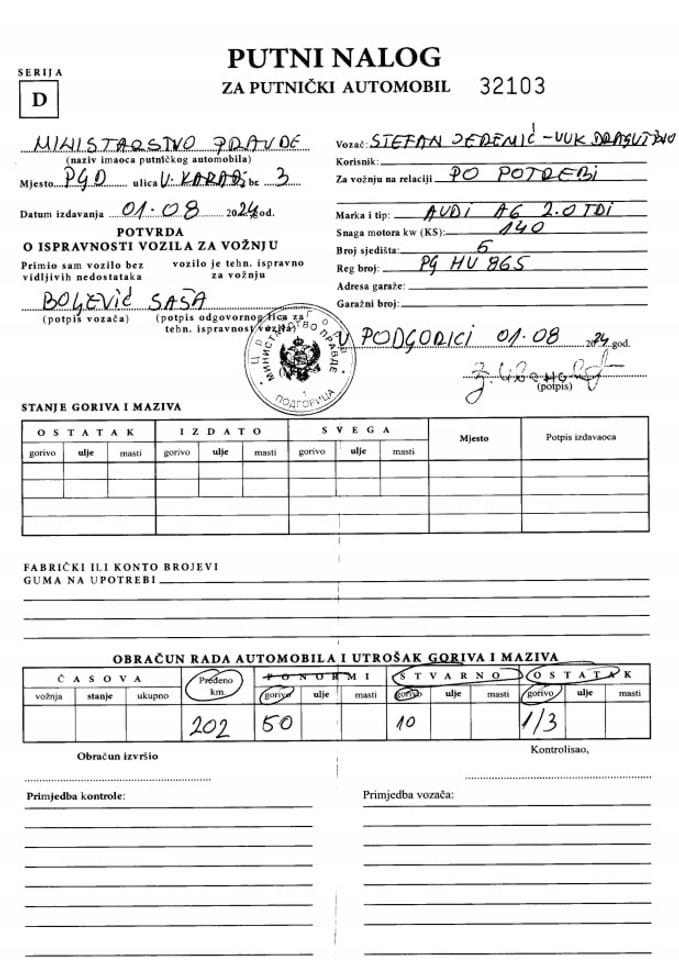 PUTNI NALOG
SERIJA
D
ZA PUTNIČKI AUTOMOBIL 32103
MINISTARSTVO PRAVDE
(naziv imaoca putničkog automobila)
Mjesto PGD ulica V. KARADž br. 3
Datum izdavanja 01.08 2024 god.
POTVRDA
O ISPRAVNOSTI VOZILA ZA VOŽNJU
Primio sam vozilo bez vidljivih nedostataka
vozilo je tehn. ispravno za vožnju
BOLJEVIĆ SAŠA
(potpis vozača) (potpis odgovornog lica za tehn. ispravnost vozila)
Vozač: STEFAN JEREMIĆ - VUK
Korisnik:
Za vožnju na relaciji PO POTREBI
Marka i tip: AUDI A6 2.0 TDI
Snaga motora kw (KS): 140
Broj sjedišta: 5
Reg broj: PG HU 865
Adresa garaže:
Garažni broj:
U PODGORICI 01.08 2024 god.
(potpis)
Црна Гора
МИНИСТАРСТВО ПРАВДЕ
1
ПОДГОРИЦА
STANJE GORIVA I MAZIVA
OSTATAK IZDATO SVEGA Mjesto Potpis izdavaoca
gorivo ulje masti gorivo ulje masti gorivo ulje masti
FABRIČKI ILI KONTO BROJEVI
GUMA NA UPOTREBI
OBRAČUN RADA AUTOMOBILA I UTROŠAK GORIVA I MAZIVA
ČASOVA Pređeno km. PO NORMI STVARNO OSTATAK
vožnja stanje ukupno gorivo ulje masti gorivo ulje masti gorivo ulje masti
202 50 10 1/3
Obračun izvršio
Kontrolisao,
Primjedba kontrole:
Primjedba vozača: